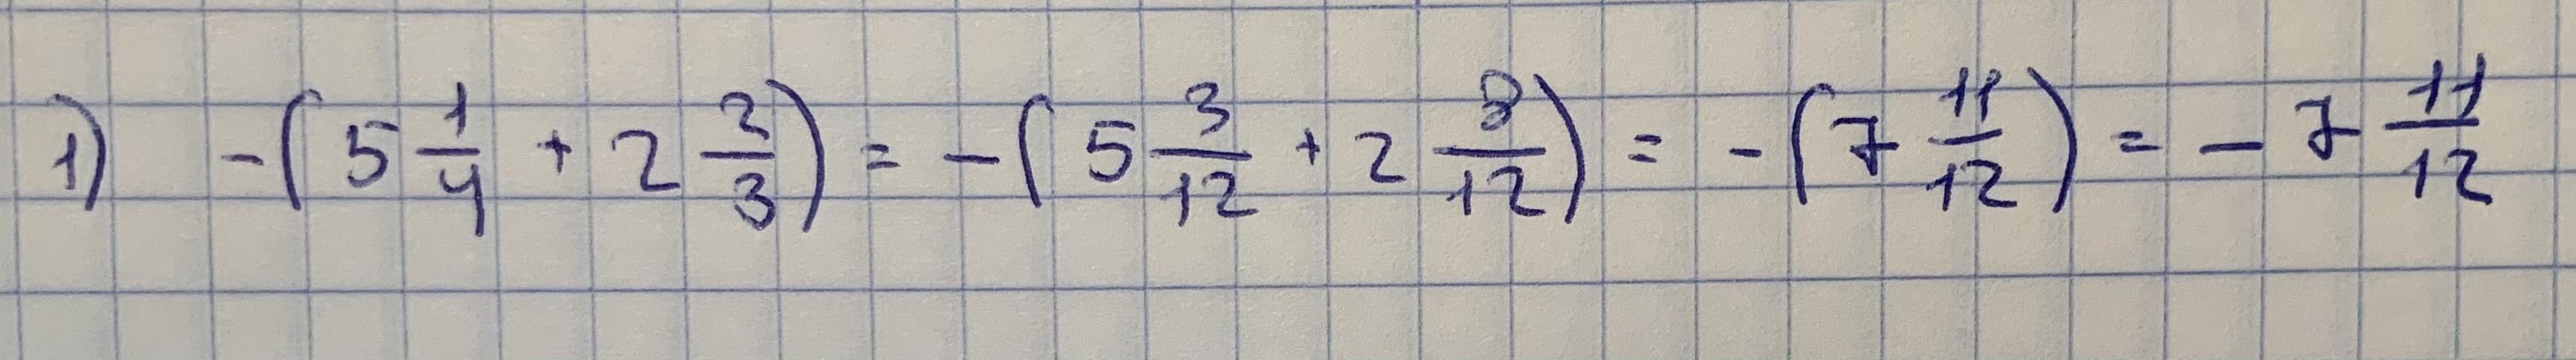 1) -(5 1/4 + 2 2/3) = -(5 3/12 + 2 8/12) = -(7 11/12) = -7 11/12